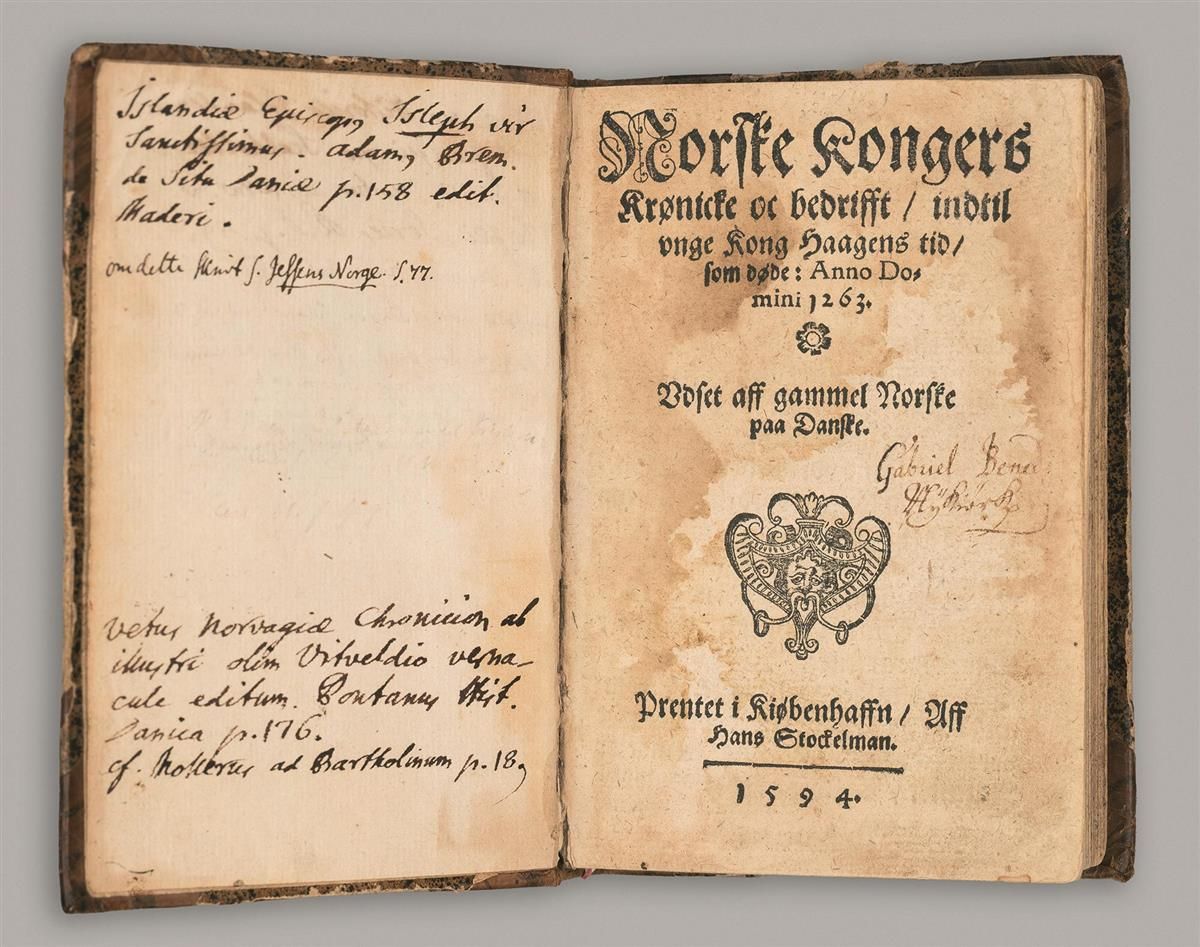 Islandiæ Episcop9 Isleph vir
Sanctissimus. Adam9 Brem.
de Situ Daniæ p. 158 edit.
Maderi.
om dette Skrivt s. Jessens Norge. S. 77.
Vetus Norvagiæ Chronicion ab
illustri olim Vitveldio verna-
cule editum. Pontanus Hist.
Danica p. 176.
cf. Mollerus ad Bartholinum p. 18
Norske Kongers
Krønicke oc bedrifft / indtil
vnge Kong Haagens tid /
som døde: Anno Do-
mini 1263.
Vdset aff gammel Norske
paa Danske.
Gabriel
Prentet i Kiøbenhaffn / Aff
Hans Stockelman.
1594.